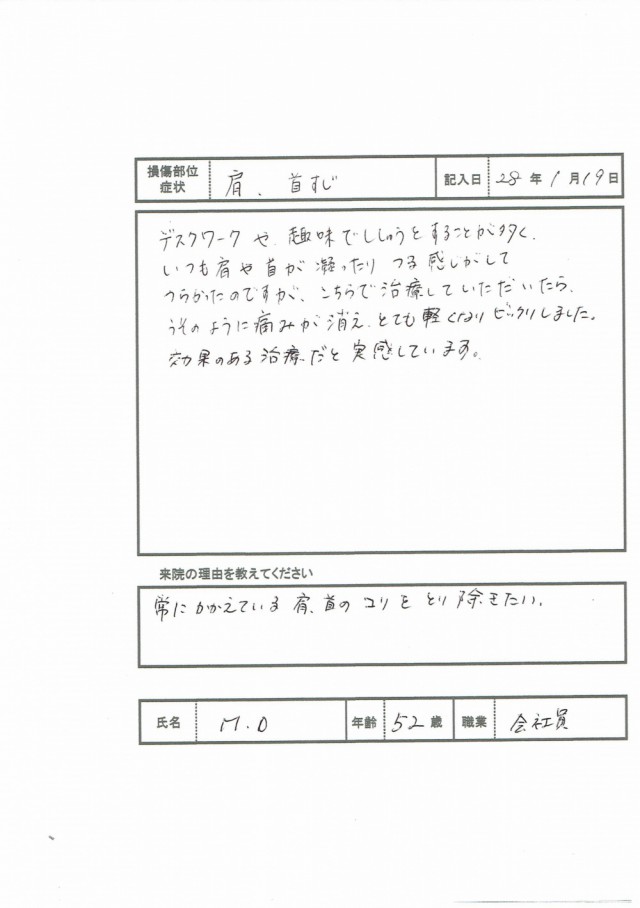 損傷部位
症状
肩、首すじ
記入日 28年1月19日
デスクワークや、趣味でししゅうをすることが多く、
いつも肩や首が凝ったりつる感じがして
つらかったのですが、こちらで治療していただいたら、
うそのように痛みが消え、とても軽くなりビックリしました。
効果のある治療だと実感しています。
来院の理由を教えてください
常にかかえている肩、首のコリをとり除きたい。
氏名 M.O 年齢 52歳 職業 会社員